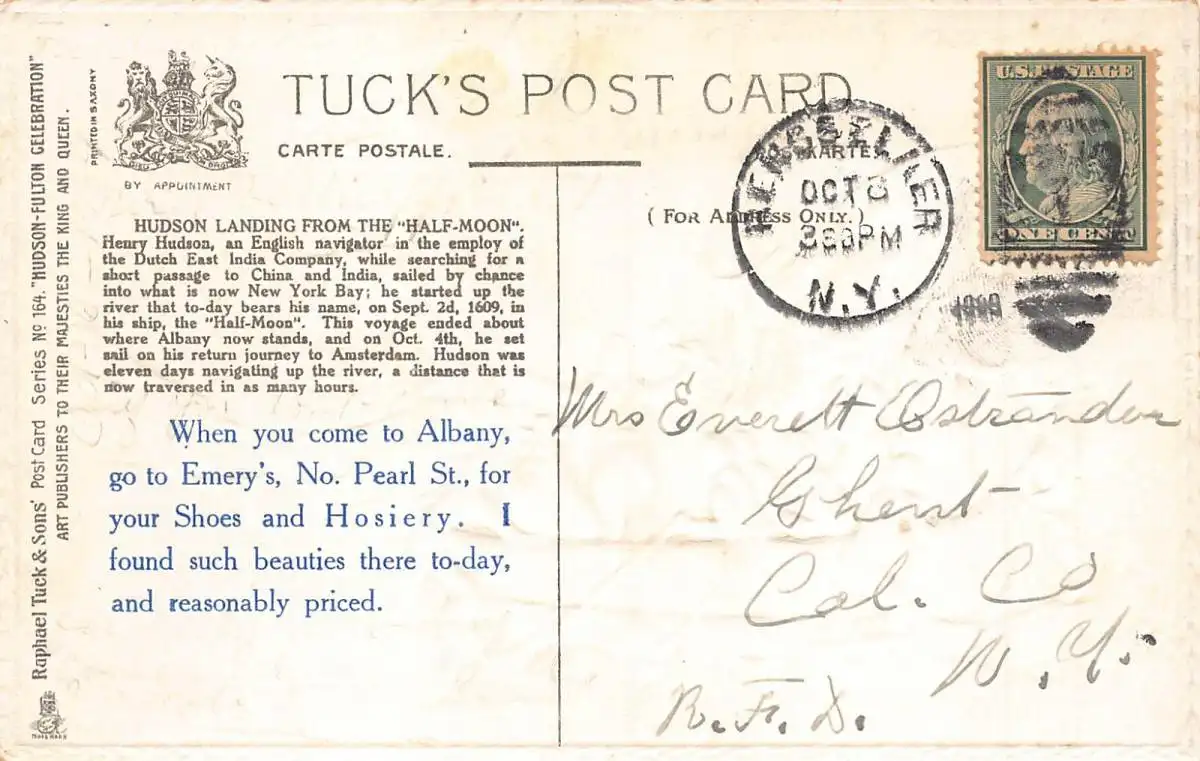 TUCK'S POST CARD
CARTE POSTALE.
BY APPOINTMENT
PRINTED IN SAXONY
(FOR ADDRESS ONLY.)
RENSSELAER
OCT 8
PM
N.Y.
1909
U.S. POSTAGE
ONE CENT
Raphael Tuck & Sons' Post Card Series No 164. "HUDSON-FULTON CELEBRATION"
ART PUBLISHERS TO THEIR MAJESTIES THE KING AND QUEEN.
HUDSON LANDING FROM THE "HALF-MOON".
Henry Hudson, an English navigator in the employ of
the Dutch East India Company, while searching for a
short passage to China and India, sailed by chance
into what is now New York Bay; he started up the
river that to-day bears his name, on Sept. 2d, 1609, in
his ship, the "Half-Moon". This voyage ended about
where Albany now stands, and on Oct. 4th, he set
sail on his return journey to Amsterdam. Hudson was
eleven days navigating up the river, a distance that is
now traversed in as many hours.
When you come to Albany,
go to Emery's, No. Pearl St., for
your Shoes and Hosiery. I
found such beauties there to-day,
and reasonably priced.
Mrs Everett Ostrander
Ghent
Col. Co
N.Y.
R.F.D.